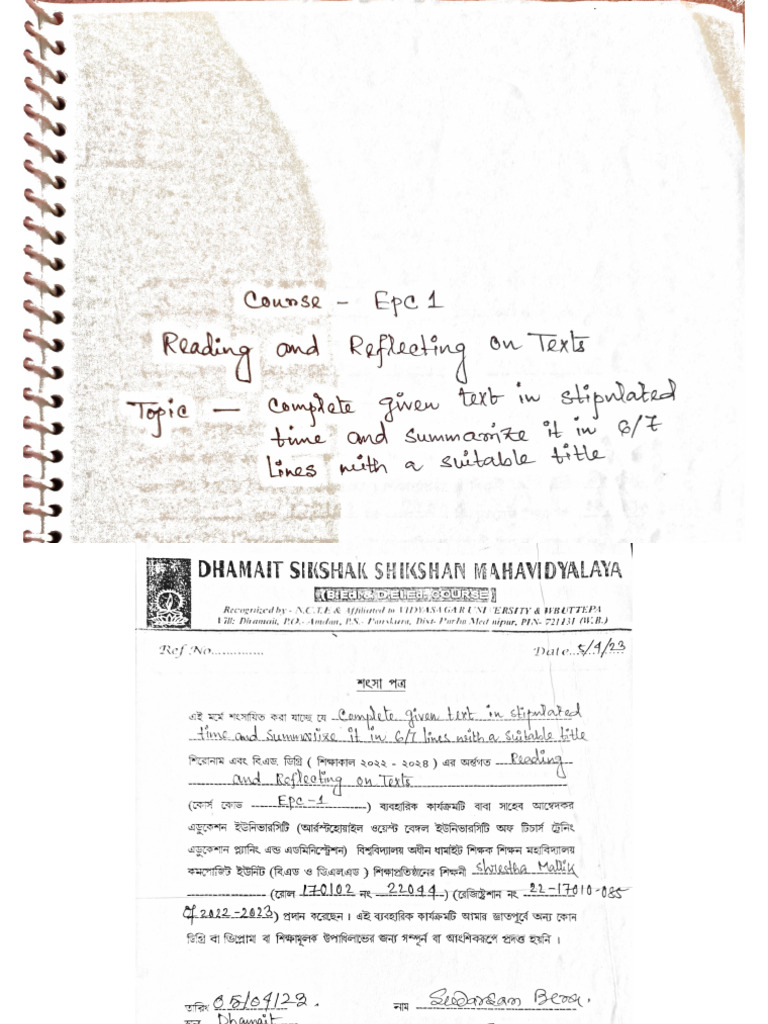 Course - Epc 1
Reading and Reflecting on Texts
Topic - Complete given text in stipulated
time and summarize it in 6/7
lines with a suitable title
DHAMAIT SIKSHAK SHIKSHAN MAHAVIDYALAYA
(B.Ed & D.El.Ed. COURSE)
Recognized by - N.C.T.E & Affiliated to VIDYASAGAR UNIVERSITY & WBUTTEPA
Vill: Dhamait, P.O.- Amdan, P.S.- Panskura, Dist- Purba Medinipur, PIN- 721131 (W.B.)
Ref No............. Date...5/4/23
শংসা পত্র
এই মর্মে শংসায়িত করা যাচ্ছে যে Complete given text in stipulated
time and summarize it in 6/7 lines with a suitable title
শিরোনাম এবং বি.এড. ডিগ্রি ( শিক্ষাকাল ২০২২ - ২০২৪ ) এর অর্ন্তগত Reading
and Reflecting on Texts
(কোর্স কোড EPC-1) ব্যবহারিক কার্যক্রমটি বাবা সাহেব আম্বেদকর
এডুকেশন ইউনিভারসিটি (আরস্টহোয়াইল ওয়েস্ট বেঙ্গল ইউনিভারসিটি অফ টিচার্স ট্রেনিং
এডুকেশান প্ল্যানিং এন্ড এডমিনিস্ট্রেশন) বিশ্ববিদ্যালয় অধীন ধামাইট শিক্ষক শিক্ষন মহাবিদ্যালয়
কমপোজিট ইউনিট (বিএড ও ডিএলএড ) শিক্ষাপ্রতিষ্ঠানের শিক্ষনী Shrestha Mallik
(রোল 170102 নং 22044) (রেজিষ্ট্রেশান নং 22-17010-085
of 2022-2023) প্রদান করেছেন । এই ব্যবহারিক কার্যক্রমটি আমার জ্ঞাতপূর্বে অন্য কোন
ডিগ্রি বা ডিপ্লোমা বা শিক্ষামূলক উপাধিলাভের জন্য সম্পূর্ন বা আংশিকরূপে প্রদত্ত হয়নি ।
তারিখ 05/04/23. নাম Sudarsan Bera.
Dhamait